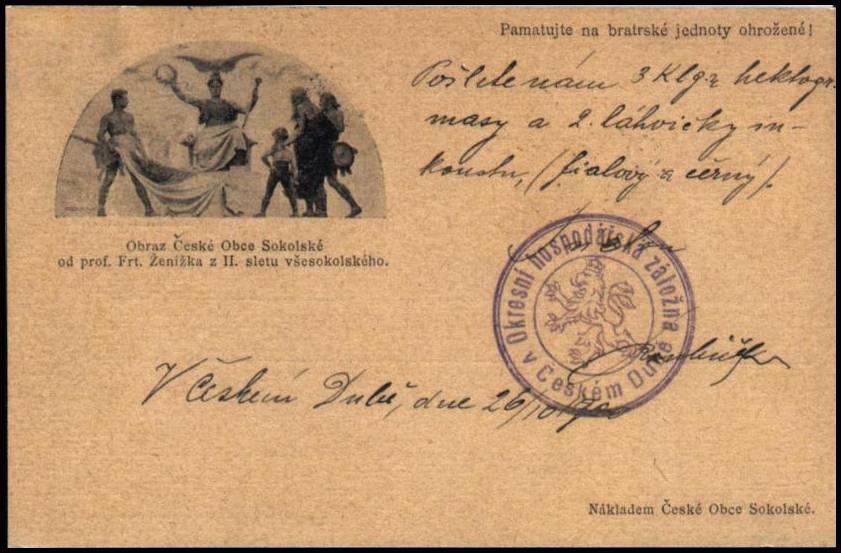 Pamatujte na bratrské jednoty ohrožené!
Pošlete nám 3 Klgr hektogr.
masy a 2 láhvičky in-
koustu, (fialový a černý).
Obraz České Obce Sokolské
od prof. Frt. Ženíška z II. sletu všesokolského.
Okresní hospodářská záložna
v Českém Dubě
V Českém Dubě, dne 26/10 1900
Nákladem České Obce Sokolské.